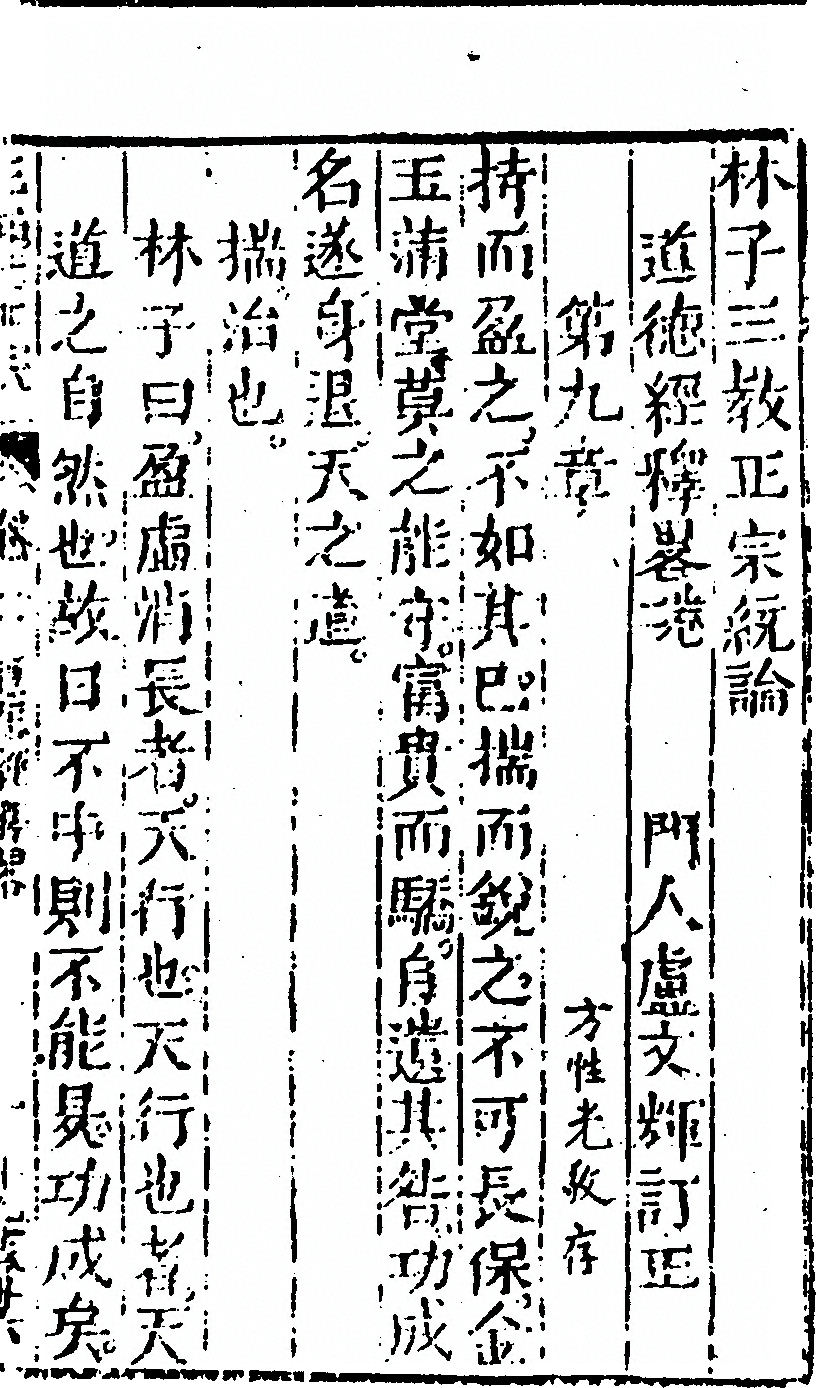 林子三教正宗統論
道德經釋畧卷 門人盧文輝訂正
第九章 方性光敘存
持而盈之不如其已揣而銳之不可長保金
玉滿堂莫之能守富貴而驕自遺其咎功成
名遂身退天之道
揣治也
林子曰盈虛消長者天行也天行也者天
道之自然也故曰不中則不能昃功成矣